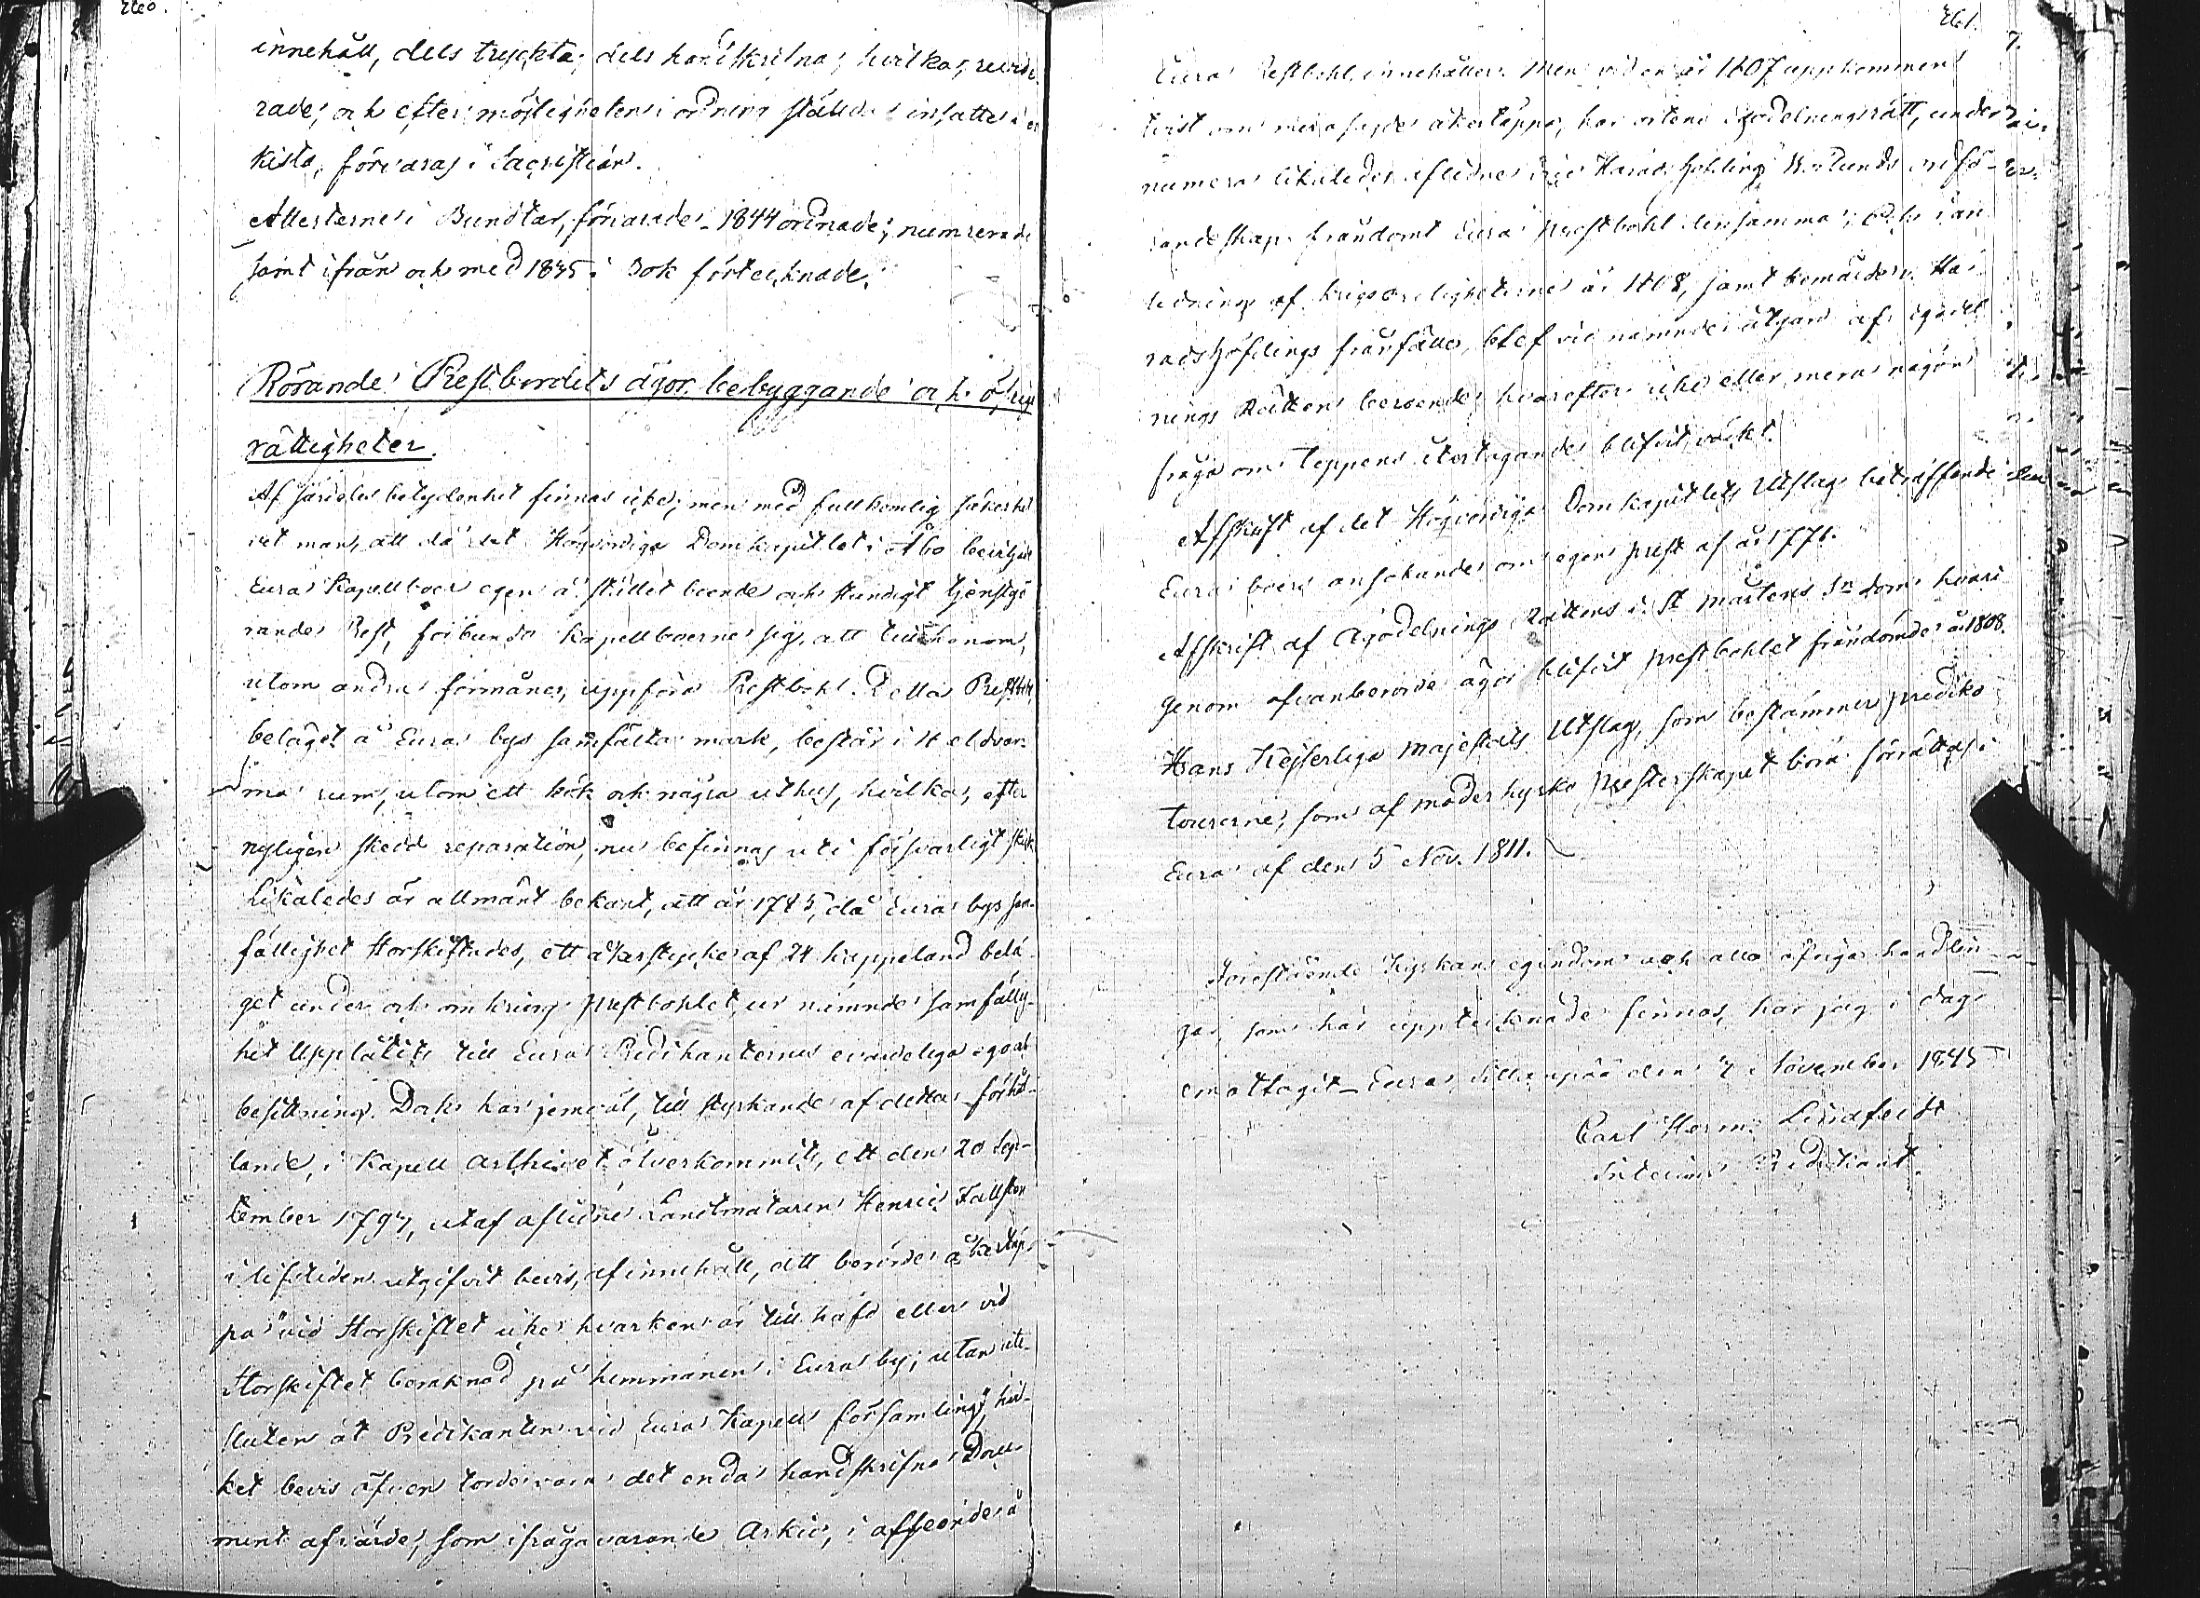 260.
innehåll, dels tryckta, dels handskrifna; hvilka, revide-
rade, och efter möjligheten i ordning ställde insattes i en
kista, förvaras i Sacristian.
Attesterne i Bundtar, förvarade, 1844 ordnade; numrerade
samt ifrån och med 1845 i Bok förtecknade.
Rörande Prestbordets ägor, bebyggande och öfriga
rättigheter.
Af särdeles betydenhet finnas icke; men med fullkomlig säkerhet
vet man, att då det Högvördiga Domkapitlet i Åbo beviljat
Eura Kapellboer egen å stället boende och ständigt tjenstgö-
rande Prest, förbundo kapellboerne sig, att till honom,
utom andra förmåner, uppföra Prestbohl. Detta Prestbohl,
beläget å Eura bys samfälta mark, består i 4 eldvar-
ma rum, utom ett kök och några uthus, hvilka, efter
nyligen skedd reparation, nu befinnas uti försvarligt skick.
Likaledes är allmänt bekant, att år 1785, då Eura bys sam-
fällighet Storskiftades, ett åkerstycke af 24 kappeland belä-
get under och omkring prestbohlet, ur nämnde samfällig-
het Upplåtits till Eura Predikanternes evärdeliga ego och
besittning. Dock har jemväl, till styrkande af detta förhål-
lande, i Kapell Archivet öfverkommits, ett den 20 Sep-
tember 1797, utaf aflidne Landtmätaren Henric Fallsten
i lifstiden utgifvit bevis, af innehåll, att berörde åkertäp-
pa "vid Storskiftet icke hvarken är till häfd eller vid
Storskiftet beräknad på hemmanen i Eura by; utan ute-
sluten åt Predikanten vid Eura Kapells församling", hvil-
ket bevis äfven torde vara det enda handskrifna Docu-
ment af värde, som ifrågavarande Arkiv, i afseende å
261.
Eura Prestbohl, innehåller. Men vid en år 1807 uppkommen
tvist om mera sagde åkertäppa, har ortens Egodelningsrätt, under
numera likaledes aflidne Härads Höfding ordfö-
randeskap, fråndömt Eura prestbohl densamma; och i an-
ledning af krigsoroligheterne år 1808, samt bemälde Hä-
radshöfdings frånfälle, blef vid nämnde åtgärd af Egodel-
nings Rätten beroende, hvarefter icke eller mera någon
fråga om täppans återtagande blifvit väckt.
Afskrift af det Högvördiga Domkapitlets Utslag beträffande
Eura boers ansökande om egen prest af år 1771.
Afskrift af Ägodelnings Rättens i St Mårtens Sn dom hvari-
genom ofvanberörde ägor blifvit prestbohlet fråndömde år 1808.
Hans Kejserliga Majestäts Utslag, som bestämmer prediko
tourerne, som af moderkyrko presterskapet böra förrättas i
Eura af den 5 Nov. 1811.
Förestående Kyrkans egendom och alla öfriga handlin-
gar, som här upptecknade finnas, har jag i dag
emottagit. Eura, Sillanpää den 7 November 1845
Carl Herm: Lindfeldt
Interims Predikant.